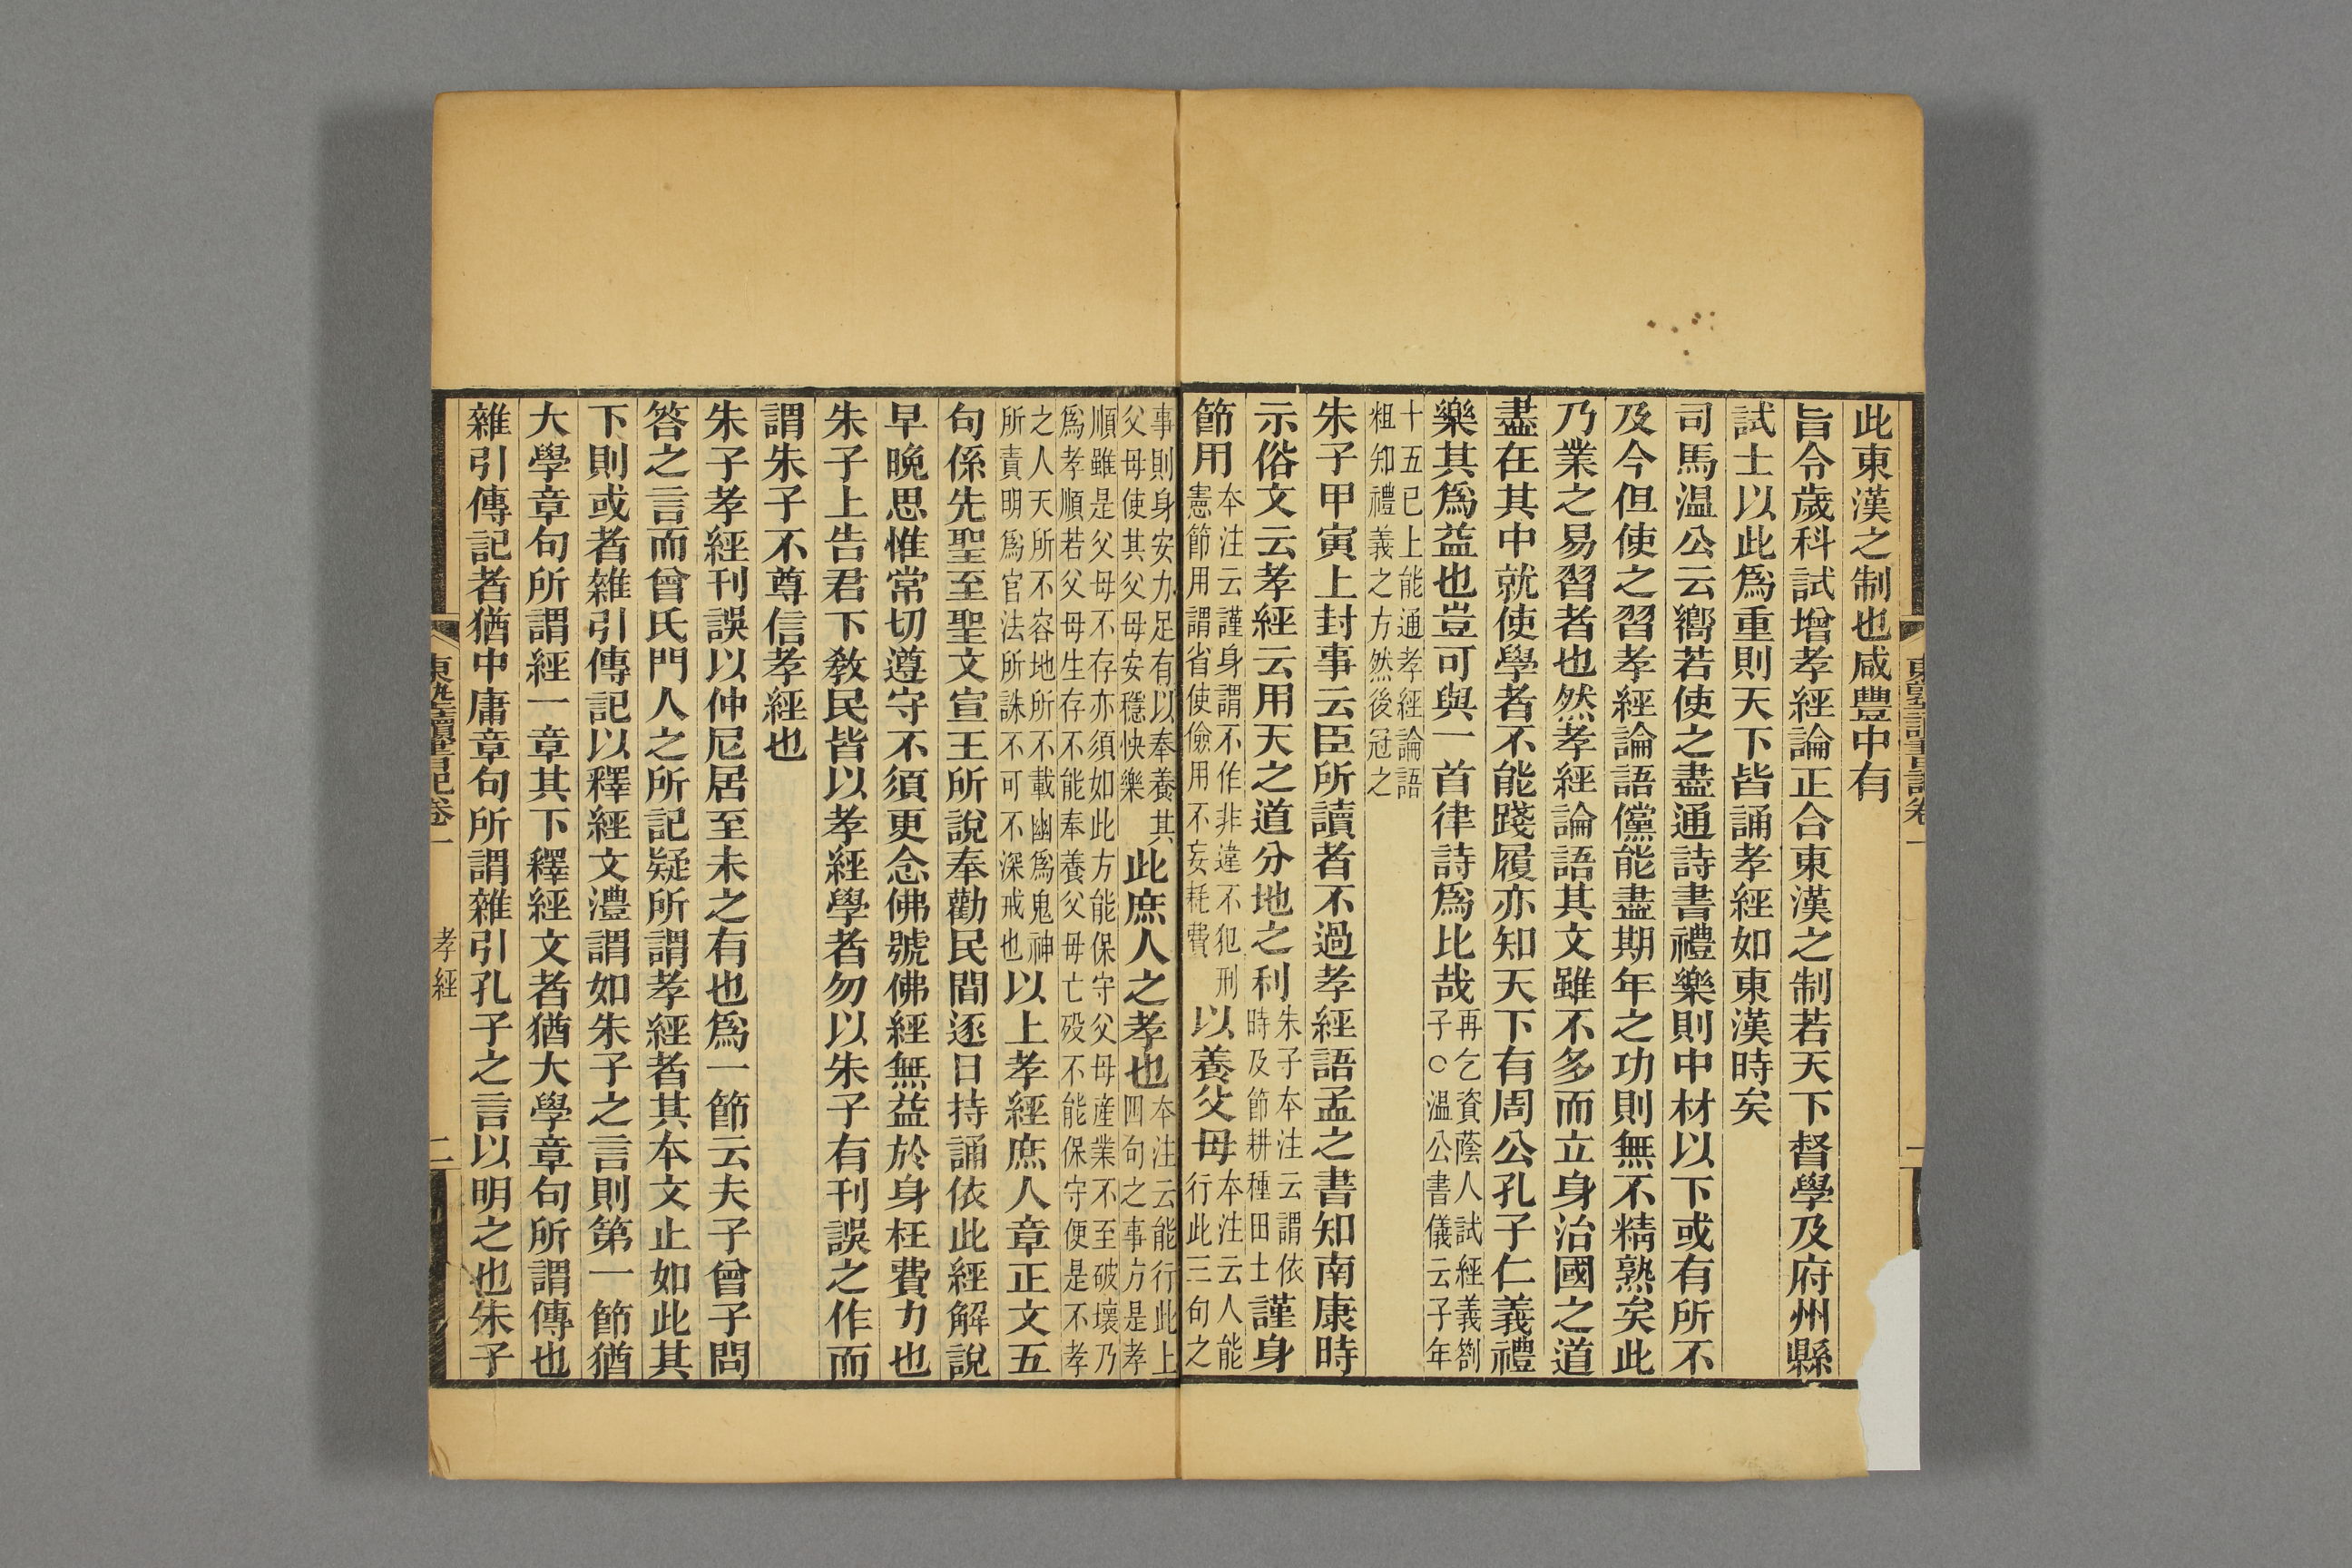 此東漢之制也咸豐中有
旨令歲科試增孝經論正合東漢之制若天下督學及府州縣
試士以此爲重則天下皆誦孝經如東漢時矣
司馬温公云嚮若使之盡通詩書禮樂則中材以下或有所不
及今但使之習孝經論語儻能盡期年之功則無不精熟矣此
乃業之易習者也然孝經論語其文雖不多而立身治國之道
盡在其中就使學者不能踐履亦知天下有周公孔子仁義禮
樂其爲益也豈可與一首律詩爲比哉再乞資蔭人試經義劄子○温公書儀云子年
十五已上能通孝經論語粗知禮義之方然後冠之
朱子甲寅上封事云臣所讀者不過孝經語孟之書知南康時
示俗文云孝經云用天之道分地之利朱子本注云謂依時及節耕種田土謹身
節用本注云謹身謂不作非違不犯刑憲節用謂省使儉用不妄耗費以養父母本注云人能行此三句之
事則身安力足有以奉養其父母使其父母安穩快樂此庶人之孝也本注云能行此上四句之事方是孝
順雖是父母不存亦須如此方能保守父母産業不至破壞乃爲孝順若父母生存不能奉養父母亡歿不能保守便是不孝
之人天所不容地所不載幽爲鬼神所責明爲官法所誅不可不深戒也以上孝經庶人章正文五
句係先聖至聖文宣王所說奉勸民間逐日持誦依此經解說
早晚思惟常切遵守不須更念佛號佛經無益於身枉費力也
朱子上告君下敎民皆以孝經學者勿以朱子有刊誤之作而
謂朱子不尊信孝經也
朱子孝經刊誤以仲尼居至未之有也爲一節云夫子曾子問
答之言而曾氏門人之所記疑所謂孝經者其本文止如此其
下則或者雜引傳記以釋經文澧謂如朱子之言則第一節猶
大學章句所謂經一章其下釋經文者猶大學章句所謂傳也
雜引傳記者猶中庸章句所謂雜引孔子之言以明之也朱子
東塾讀書記卷一
孝經
二